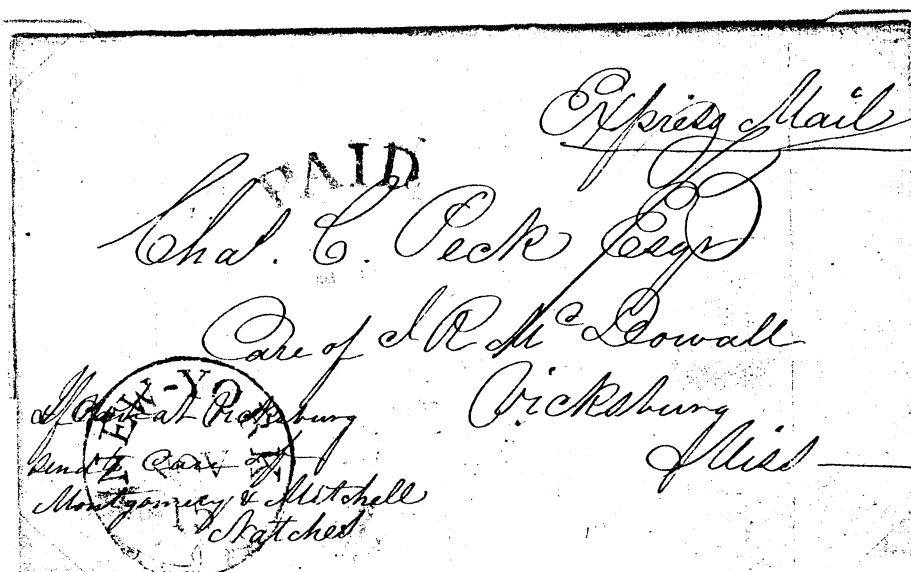 Express Mail
PAID
Chas. C. Peck Esqr
Care of J R Mc Dowall
Vicksburg
Miss
NEW-YORK
If not at Vicksburg
send to care of
Montgomery & Mitchell
Natchez